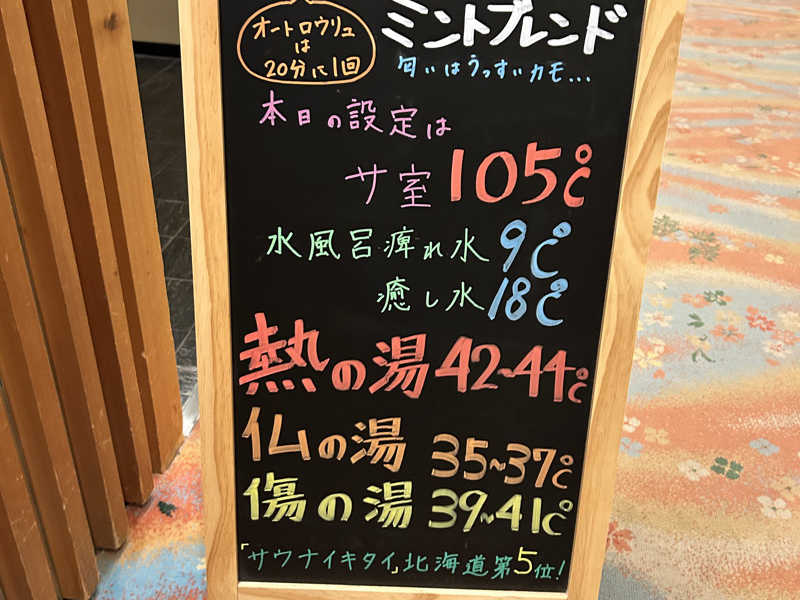 オートロウリュ
は
20分に1回
ミントブレンド
匂いはうっすいカモ...
本日の設定は
サ室 105℃
水風呂痺れ水 9℃
癒し水 18℃
熱の湯 42~44℃
仏の湯 35~37℃
傷の湯 39~41℃
「サウナイキタイ」北海道第5位!